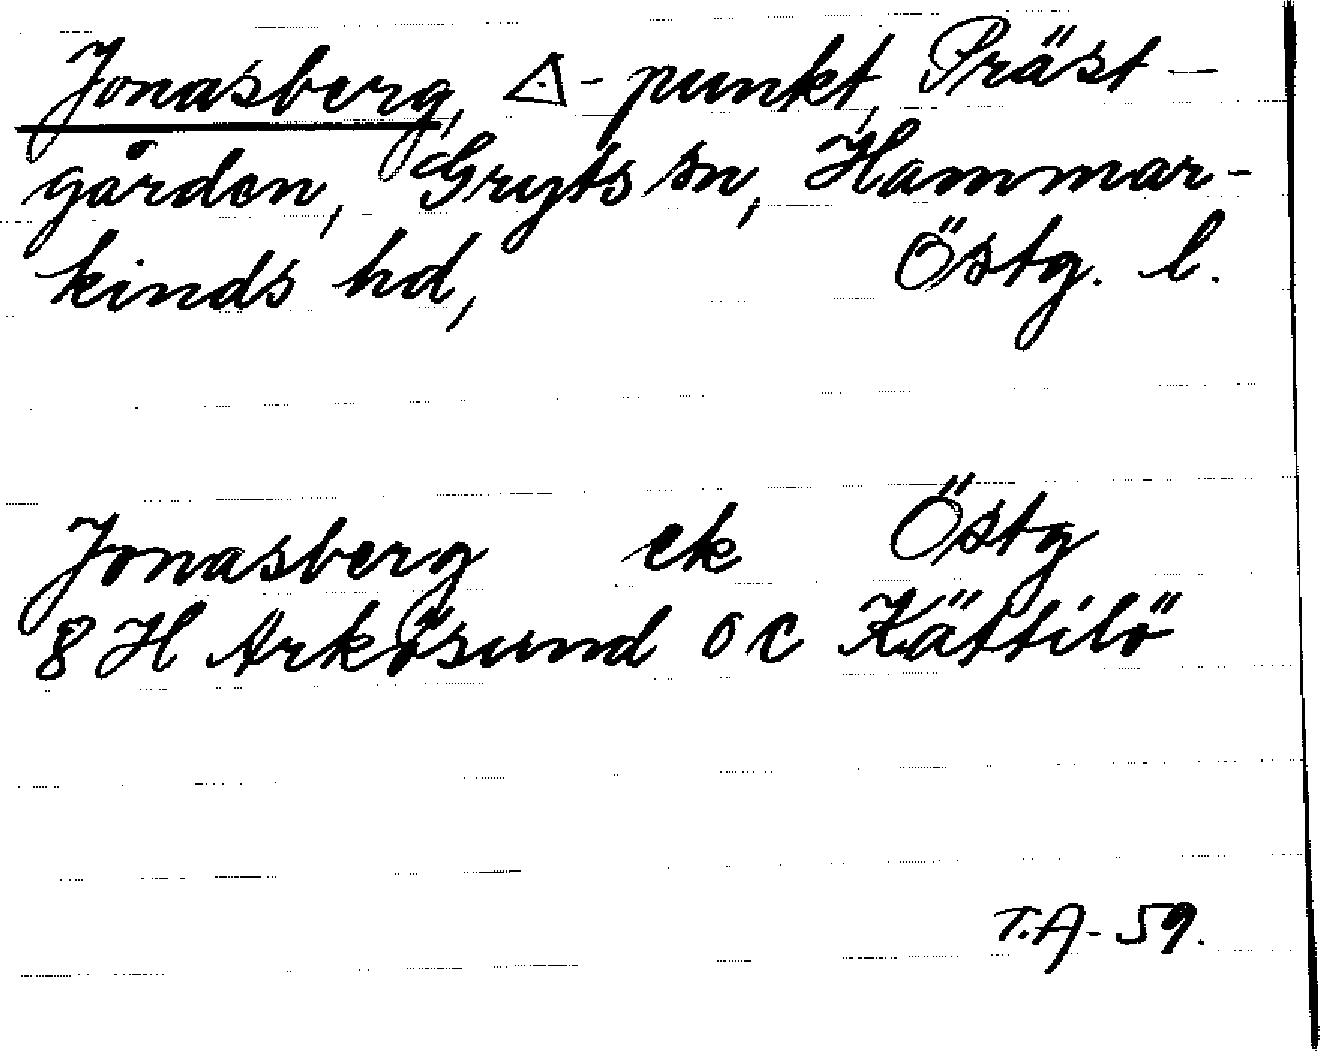 Jonasberg, △-punkt, Präst-
gården, Gryts sn, Hammar-
kinds hd, Östg. l.
Jonasberg ek Östg
8 H Arkösund o c Kättilö
T.A-59.